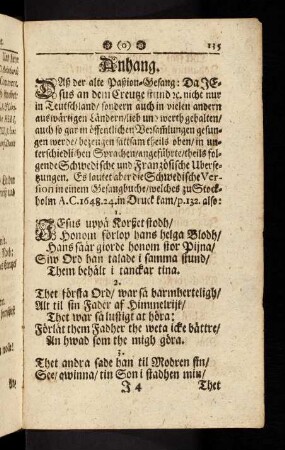 (o) 115
Anhang.
Daß der alte Paßion-Gesang: Da JE-
sus an dem Creutze stund ꝛc. nicht nur
in Teutschland/ sondern auch in vielen andern
auswärtigen Ländern/lieb und werth gehalten/
auch so gar in öffentlichen Versam̃lungen gesun-
gen werde/ bezeugen sattsam theils oben/ in un-
terschiedlichen Sprachen/angeführte/theils fol-
gende Schwedische und Frantzösische Uberse-
tzungen. Es lautet aber die Schwedische Ver-
sion in einem Gesangbuche/welches zu Stock-
holm A.C.1648.24. in Druck kam/p.132. also:
1.
JEsus uppå Korßet stodh/
Honom förlop hans helga Blodh/
Hans såår giorde honom stor Pijna/
Siw Ord han talade i samma stund/
Them behålt i tanckar tina.
2.
Thet första Ord/ war så barmherteligh/
Alt til sin Fader af Himmelrijk/
Thet war så lustigt at höra:
Förlåt them Fadher the weta icke bättre/
An hwad som the migh göra.
3.
Thet andra sade han til Modren sin/
See/ qwinna/ tin Son i stadhen min/
J 4 Thet